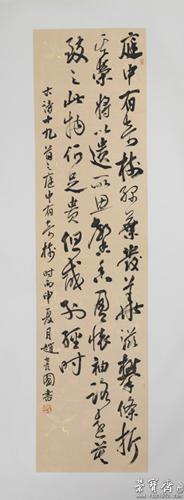 庭中有奇樹綠葉發華滋攀條折
其榮將以遺所思馨香盈懷袖路遠莫
致之此物何足貴但感別經時
古詩十九首之庭中有奇樹 时丙申夏月趙國書